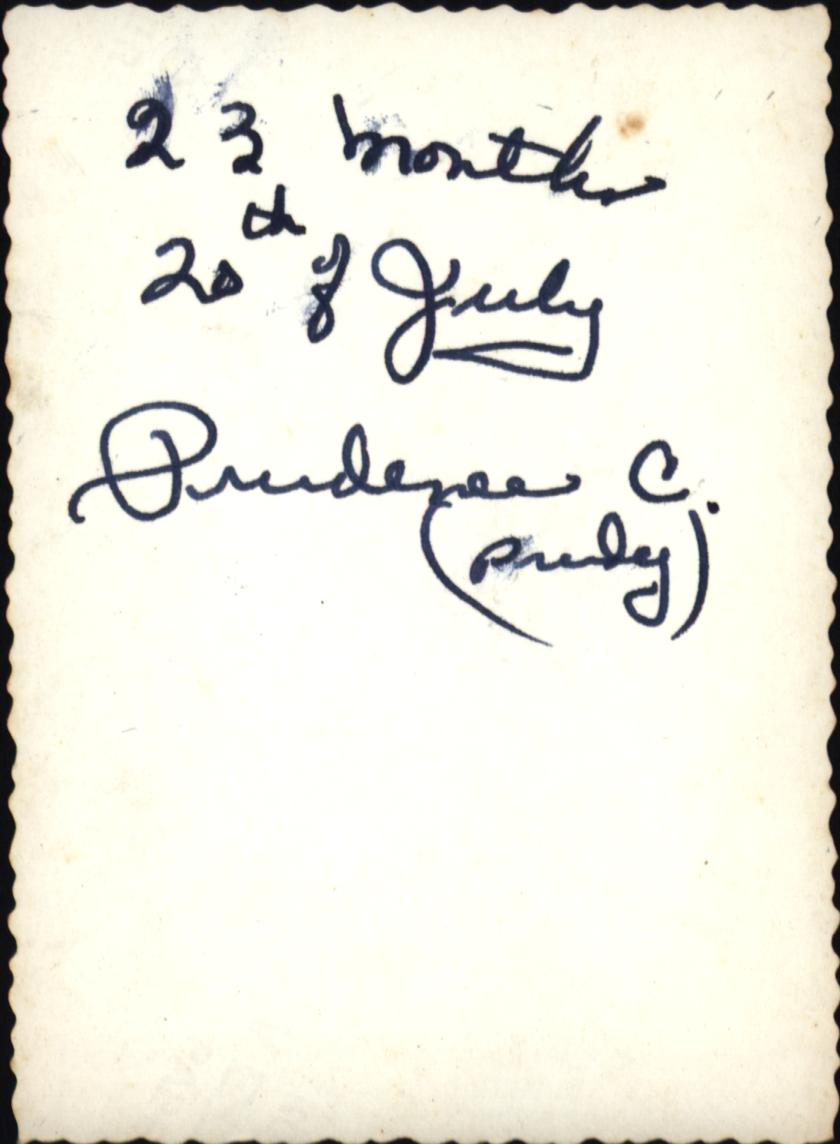 23 months
20th of July
Prudence C.
(Prudy)